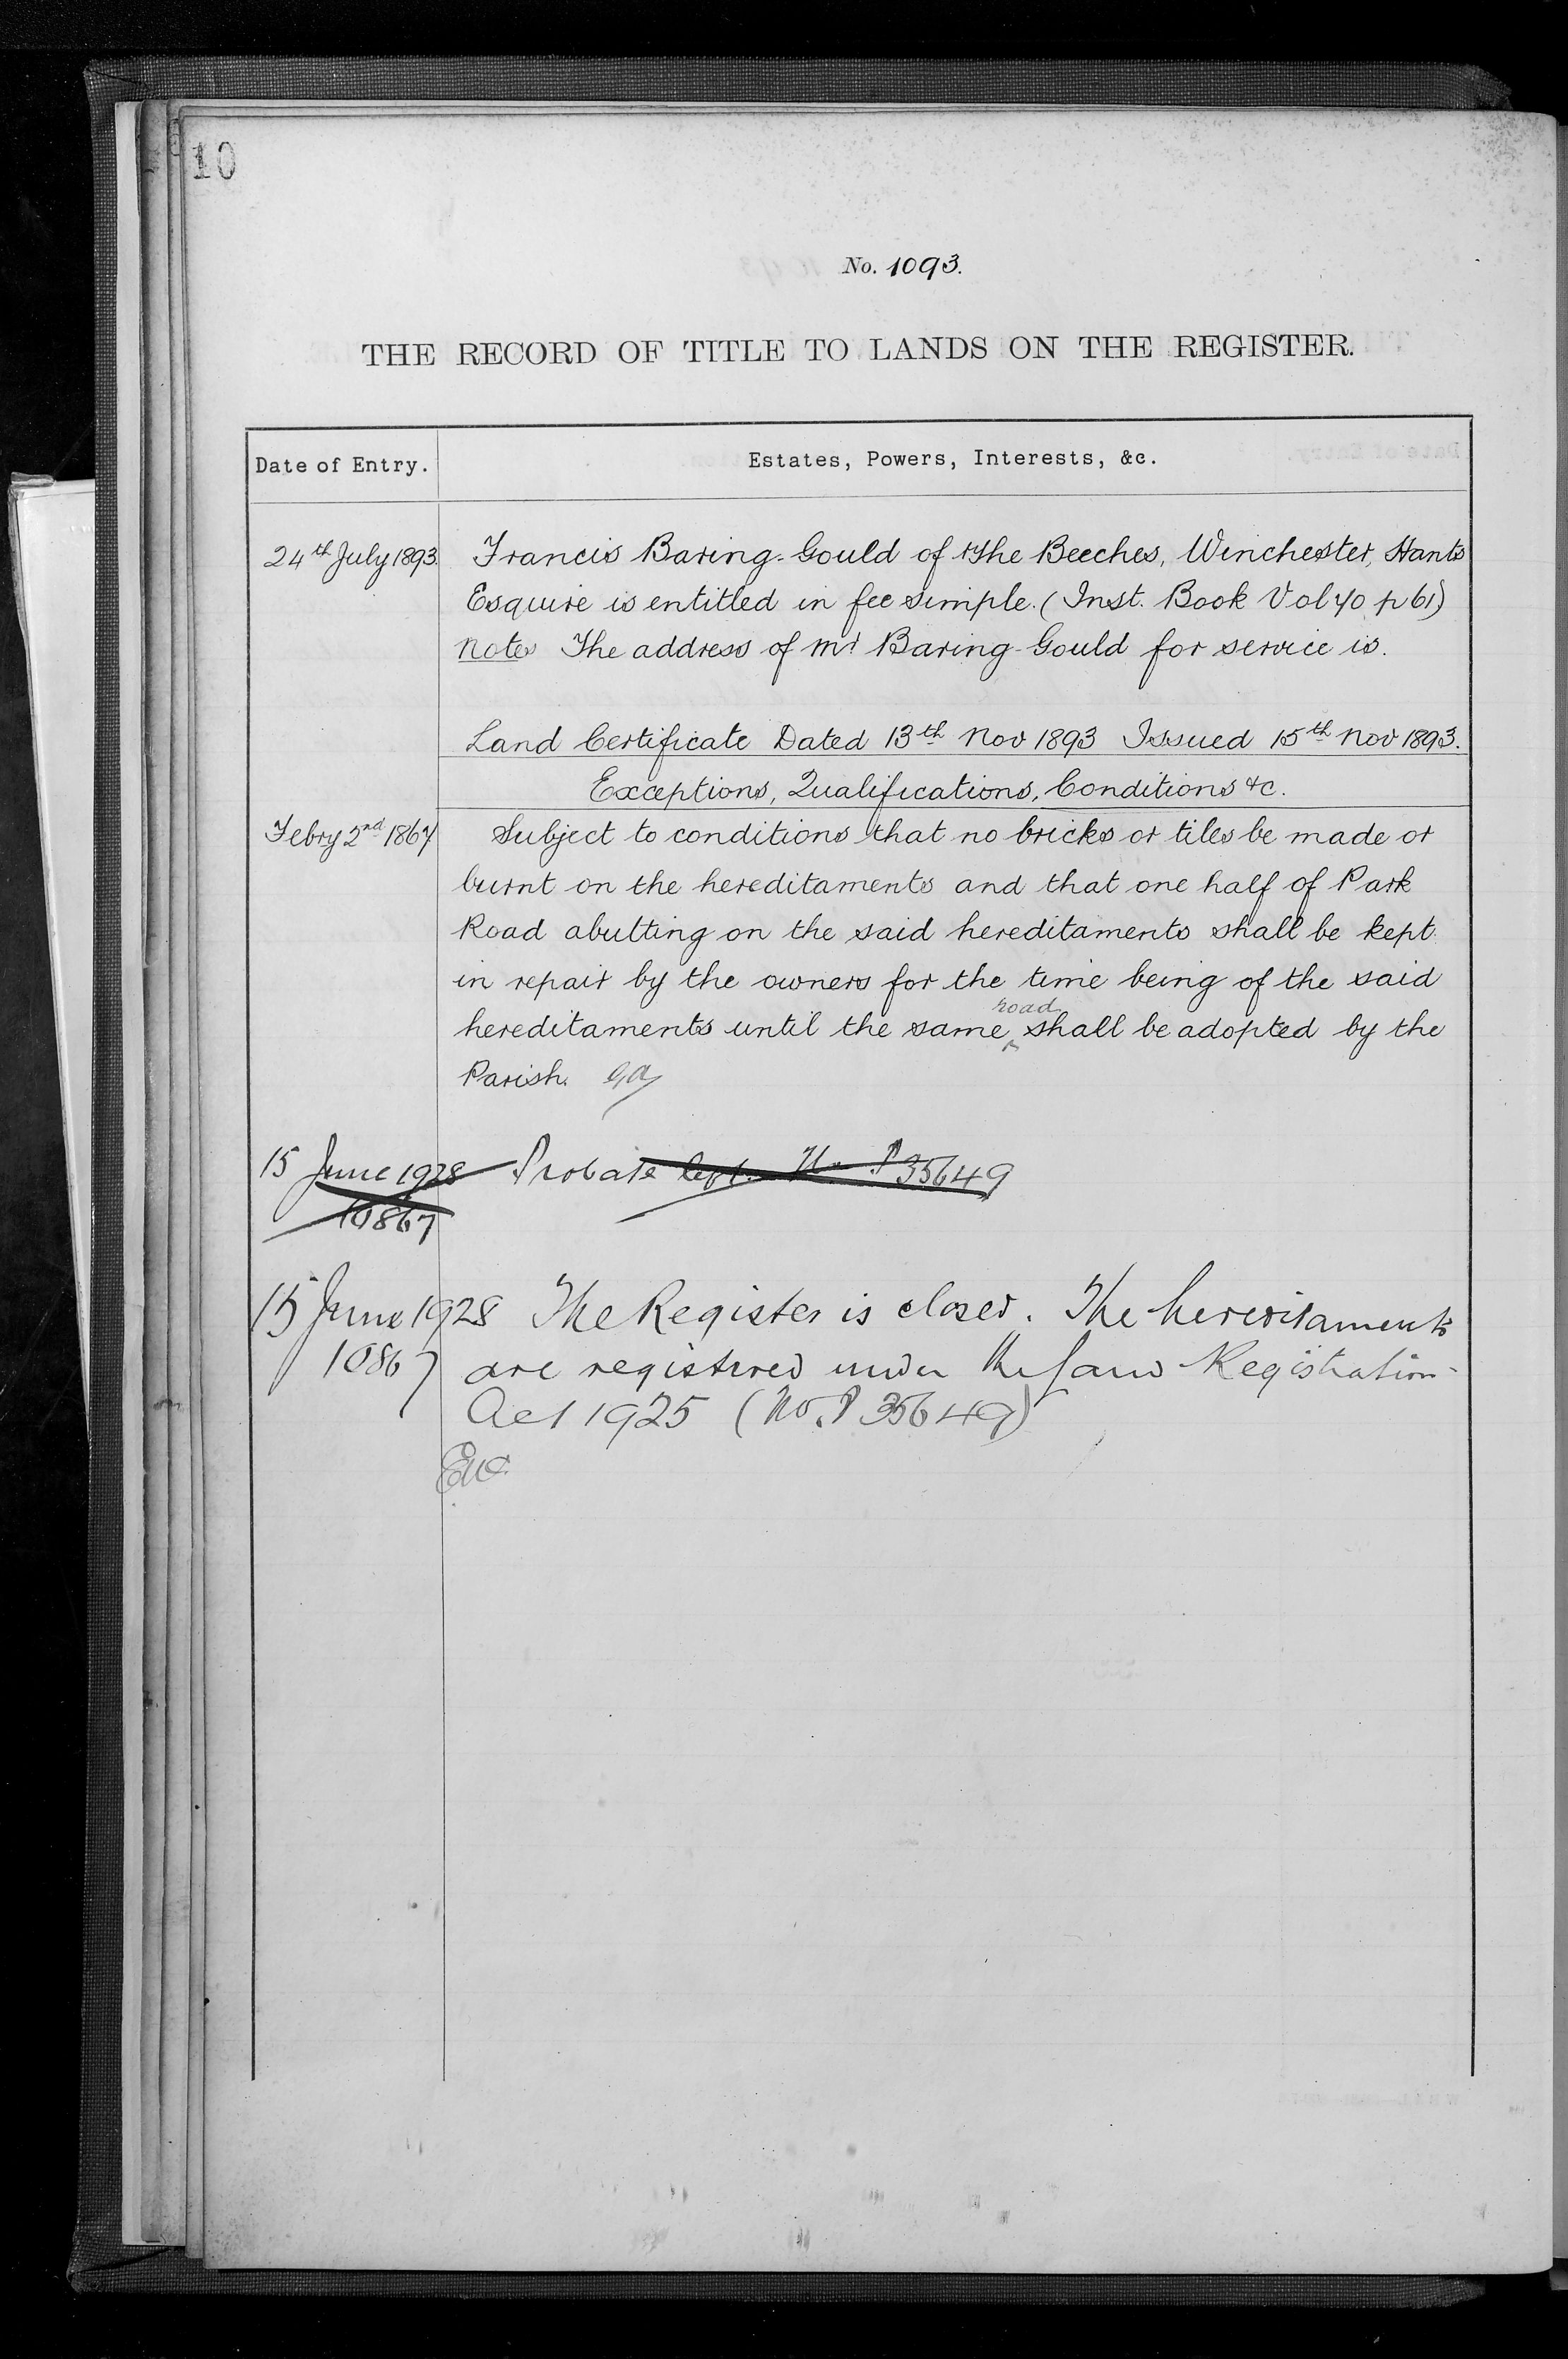 10
No. 1093.
THE RECORD OF TITLE TO LANDS ON THE REGISTER.
Date of Entry. Estates, Powers, Interests, &c.
24th July 1893. Francis Baring-Gould of The Beeches, Winchester, Hants
Esquire is entitled in fee simple. (Inst. Book Vol 40 p 61)
Note The address of Mr Baring-Gould for service is.
Land Certificate Dated 13th Nov 1893 Issued 15th Nov 1893.
Exceptions, Qualifications, Conditions &c.
Febry 2nd 1867 Subject to conditions that no bricks or tiles be made or
burnt on the hereditaments and that one half of Park
Road abutting on the said hereditaments shall be kept
in repair by the owners for the time being of the said
hereditaments until the same road shall be adopted by the
Parish.
15 June 1928 Probate P 35649
10867
15 June 1928 The Register is closed. The hereditaments
10867 are registered under the Land Registration
Act 1925 (No. P 35649)